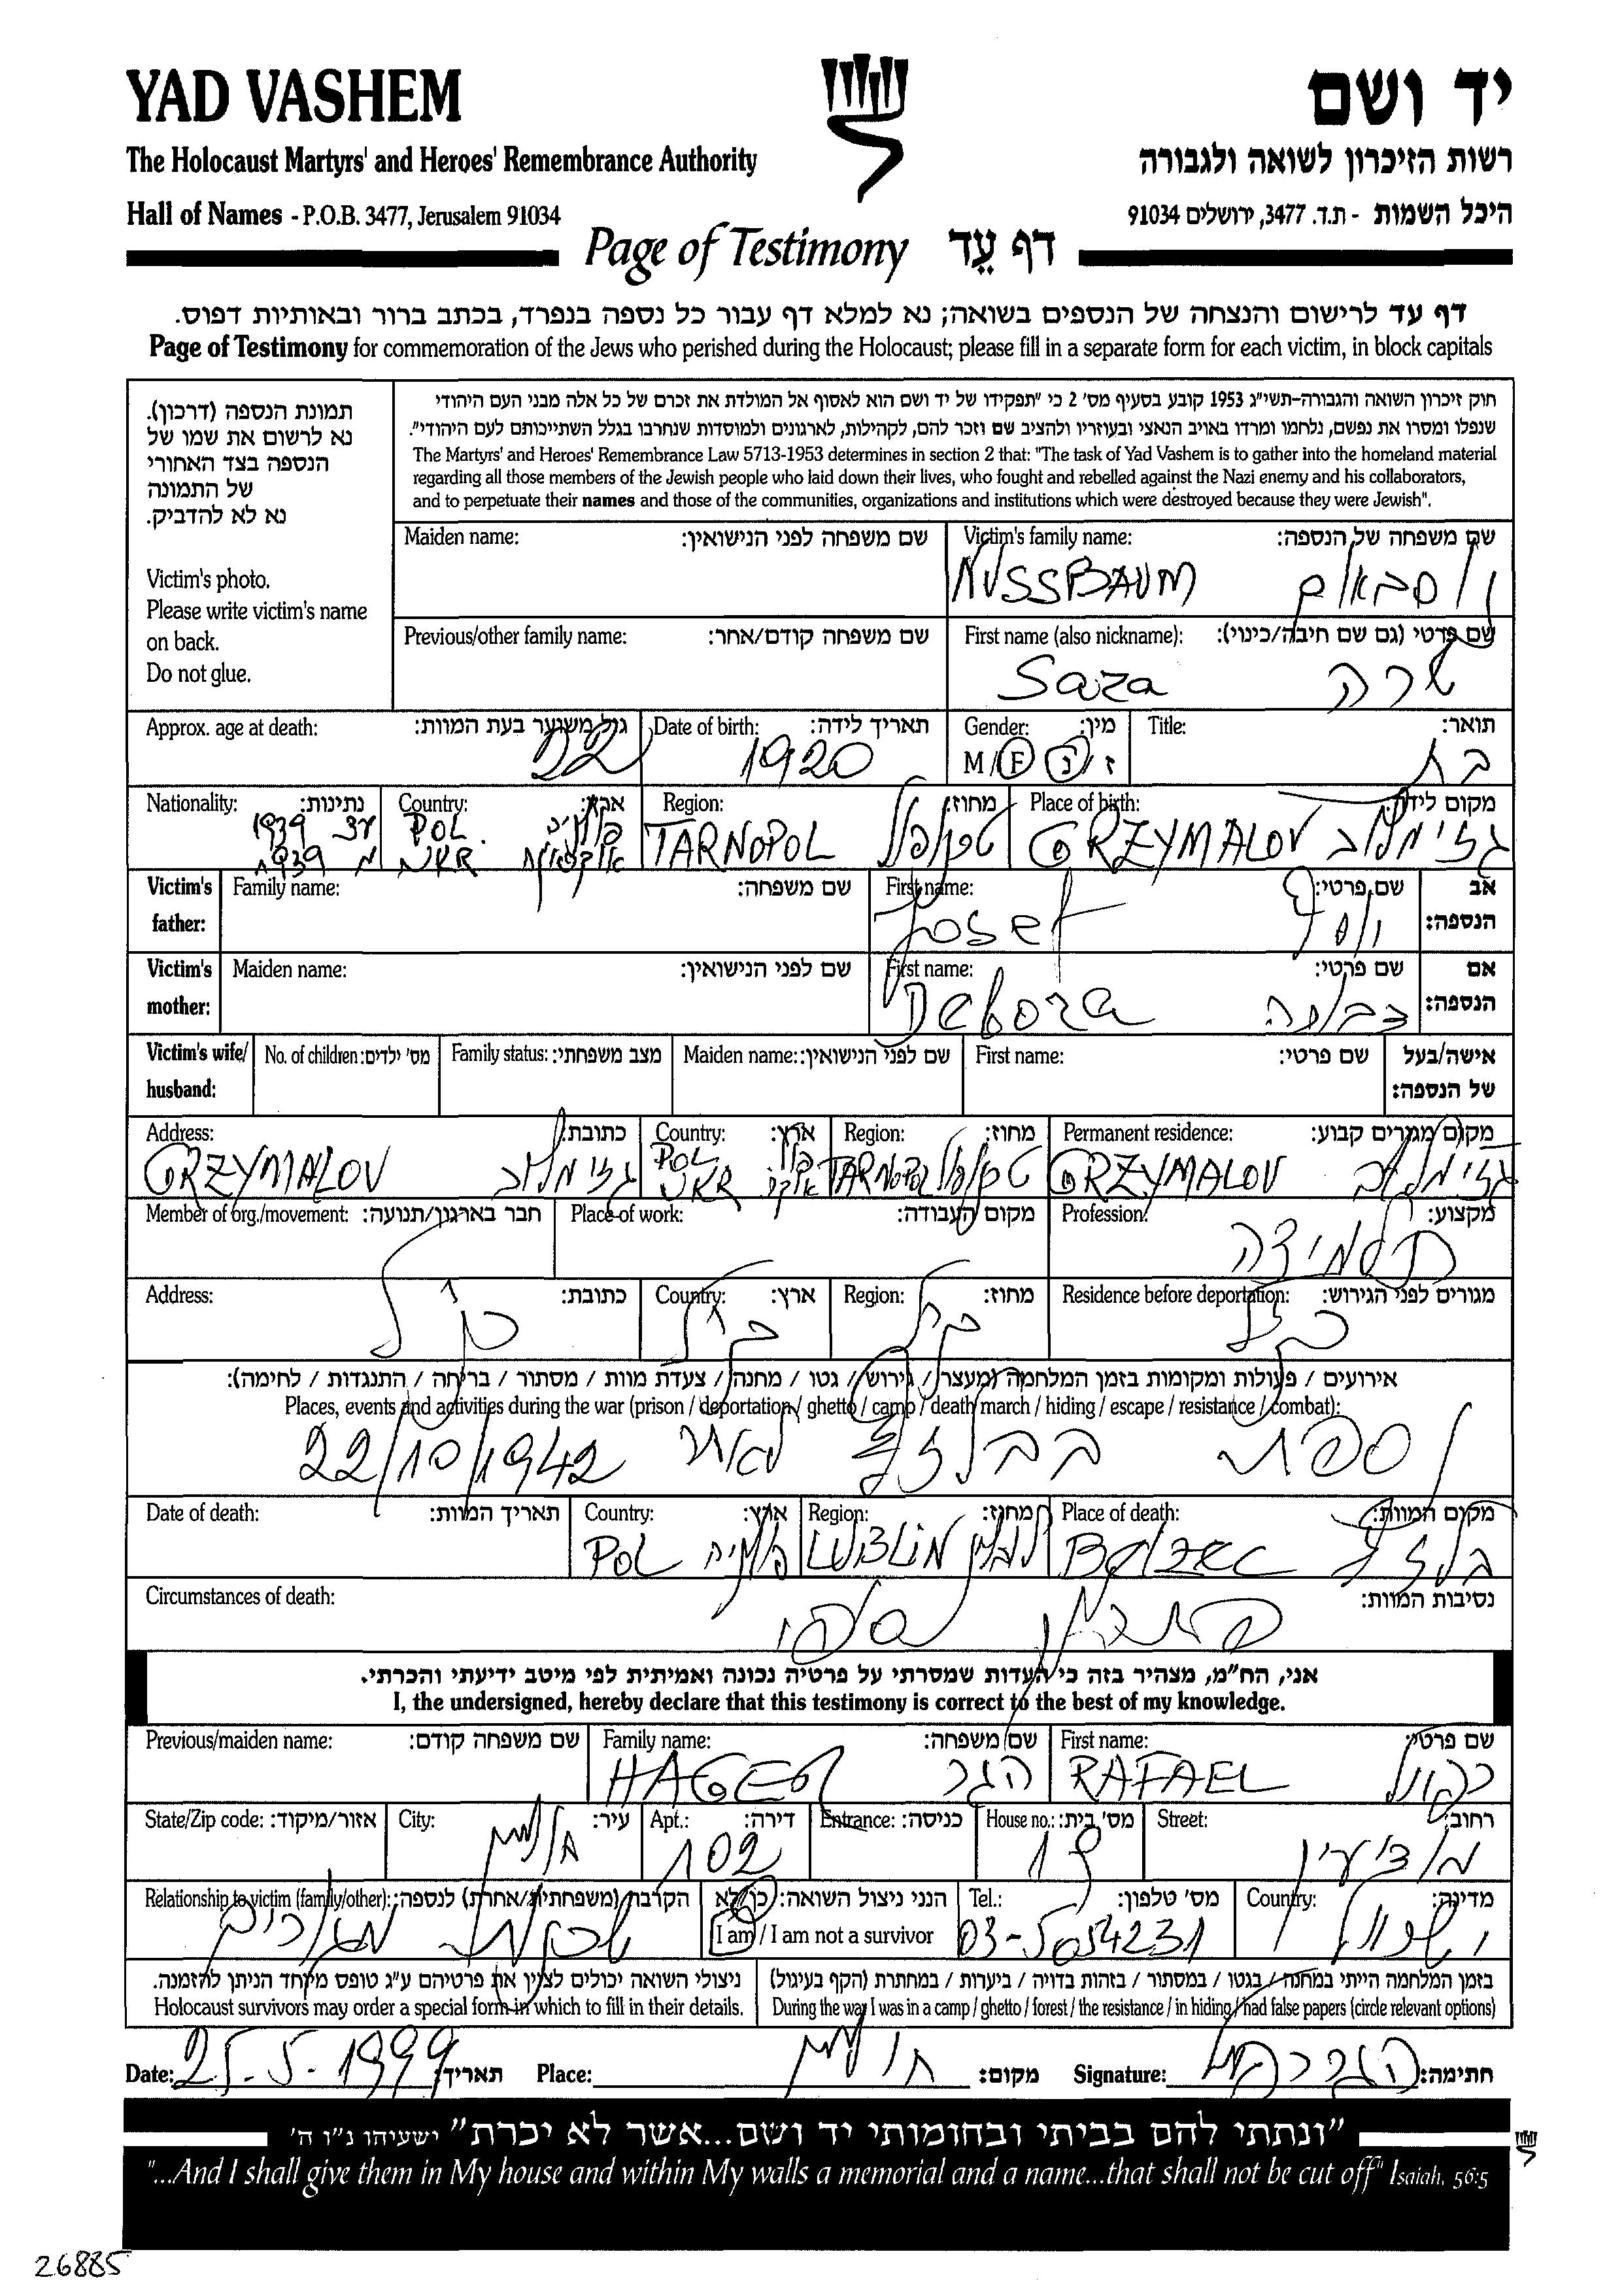 YAD VASHEM
יד ושם
The Holocaust Martyrs' and Heroes' Remembrance Authority
רשות הזיכרון לשואה ולגבורה
Hall of Names - P.O.B. 3477, Jerusalem 91034
היכל השמות - ת.ד. 3477, ירושלים 91034
Page of Testimony דף עֵד
דף עד לרישום והנצחה של הנספים בשואה; נא למלא דף עבור כל נספה בנפרד, בכתב ברור ובאותיות דפוס.
Page of Testimony for commemoration of the Jews who perished during the Holocaust; please fill in a separate form for each victim, in block capitals
תמונת הנספה (דרכון).
נא לרשום את שמו של
הנספה בצד האחורי
של התמונה
נא לא להדביק.
Victim's photo.
Please write victim's name
on back.
Do not glue.
חוק זיכרון השואה והגבורה-תשי"ג 1953 קובע בסעיף מס' 2 כי "תפקידו של יד ושם הוא לאסוף אל המולדת את זכרם של כל אלה מבני העם היהודי
שנפלו ומסרו את נפשם, נלחמו ומרדו באויב הנאצי ובעוזריו ולהציב שם וזכר להם, לקהילות, לארגונים ולמוסדות שנחרבו בגלל השתייכותם לעם היהודי".
The Martyrs' and Heroes' Remembrance Law 5713-1953 determines in section 2 that: "The task of Yad Vashem is to gather into the homeland material
regarding all those members of the Jewish people who laid down their lives, who fought and rebelled against the Nazi enemy and his collaborators,
and to perpetuate their names and those of the communities, organizations and institutions which were destroyed because they were Jewish".
Maiden name: שם משפחה לפני הנישואין:
Victim's family name: שם משפחה של הנספה:
NUSSBAUM נוסבאום
Previous/other family name: שם משפחה קודם/אחר:
First name (also nickname): שם פרטי (גם שם חיבה/כינוי):
Sara שרה
Approx. age at death: גיל משוער בעת המוות:
22
Date of birth: תאריך לידה:
1920
Gender: מין:
M / F ז / נ
Title: תואר:
בת
Nationality: נתינות:
1939 עד
1939 מ
Country: ארץ:
POL פולניה
UKR אוקראינה
Region: מחוז:
TARNOPOL טרנופול
Place of birth: מקום לידה:
GRZYMALOV גז'ימלוב
Victim's father:
Family name: שם משפחה:
First name: שם פרטי:
Josef יוסף
אב הנספה:
Victim's mother:
Maiden name: שם לפני הנישואין:
First name: שם פרטי:
Debora דבורה
אם הנספה:
Victim's wife/ husband:
No. of children: מס' ילדים:
Family status: מצב משפחתי:
Maiden name: שם לפני הנישואין:
First name: שם פרטי:
אישה/בעל של הנספה:
Address: כתובת:
GRZYMALOV גז'ימלוב
Country: ארץ:
POL פולין
UKR אוקר
Region: מחוז:
TARNOPOL טרנופול
Permanent residence: מקום מגורים קבוע:
GRZYMALOV גז'ימלוב
Member of org./movement: חבר בארגון/תנועה:
Place of work: מקום העבודה:
Profession: מקצוע:
תלמידה
Address: כתובת:
כנ"ל
Country: ארץ:
כנ"ל
Region: מחוז:
כנ"ל
Residence before deportation: מגורים לפני הגירוש:
כנ"ל
אירועים / פעולות ומקומות בזמן המלחמה (מעצר / גירוש / גטו / מחנה / צעדת מוות / מסתור / בריחה / התנגדות / לחימה):
Places, events and activities during the war (prison / deportation / ghetto / camp / death march / hiding / escape / resistance / combat):
נספת בבלזץ 22/10/1942
Date of death: תאריך המוות:
Country: ארץ:
POL פולניה
Region: מחוז:
LUBLIN לובלין
Place of death: מקום המוות:
Belzec בלזץ
Circumstances of death: נסיבות המוות:
פתרון סופי
אני, הח"מ, מצהיר בזה כי העדות שמסרתי על פרטיה נכונה ואמיתית לפי מיטב ידיעתי והכרתי.
I, the undersigned, hereby declare that this testimony is correct to the best of my knowledge.
Previous/maiden name: שם משפחה קודם:
Family name: שם משפחה:
HAGER הגר
First name: שם פרטי:
RAFAEL רפאל
State/Zip code: אזור/מיקוד:
City: עיר:
חולון
Apt.: דירה:
102
Entrance: כניסה:
House no.: מס' בית:
19
Street: רחוב:
מודיעין
Relationship to victim (family/other): הקרבה (משפחתית/אחרת) לנספה:
שכנות מגורים
הנני ניצול השואה: כן/לא
I am / I am not a survivor
Tel.: מס' טלפון:
03-5054231
Country: מדינה:
ישראל
ניצולי השואה יכולים לציין את פרטיהם ע"ג טופס מיוחד הניתן להזמנה.
Holocaust survivors may order a special form in which to fill in their details.
בזמן המלחמה הייתי במחנה / בגטו / במסתור / בזהות בדויה / ביערות / במחתרת (הקף בעיגול)
During the war I was in a camp / ghetto / forest / the resistance / in hiding / had false papers (circle relevant options)
Date: 25.5.1999 תאריך: Place: חולון מקום: Signature: הגר רפאל חתימה:
"ונתתי להם בביתי ובחומותי יד ושם...אשר לא יכרת" ישעיהו נ"ו ה'
"...And I shall give them in My house and within My walls a memorial and a name...that shall not be cut off" Isaiah, 56:5
26885